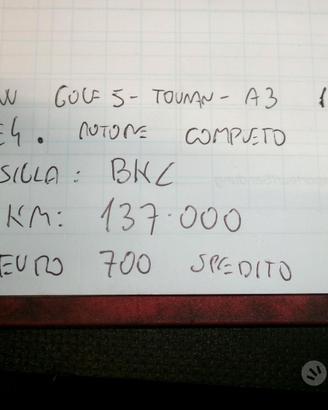 W GOLF 5 - TOURAN - A3
E4. MOTORE COMPLETO
SIGLA: BKC
KM: 137.000
EURO 700 SPEDITO